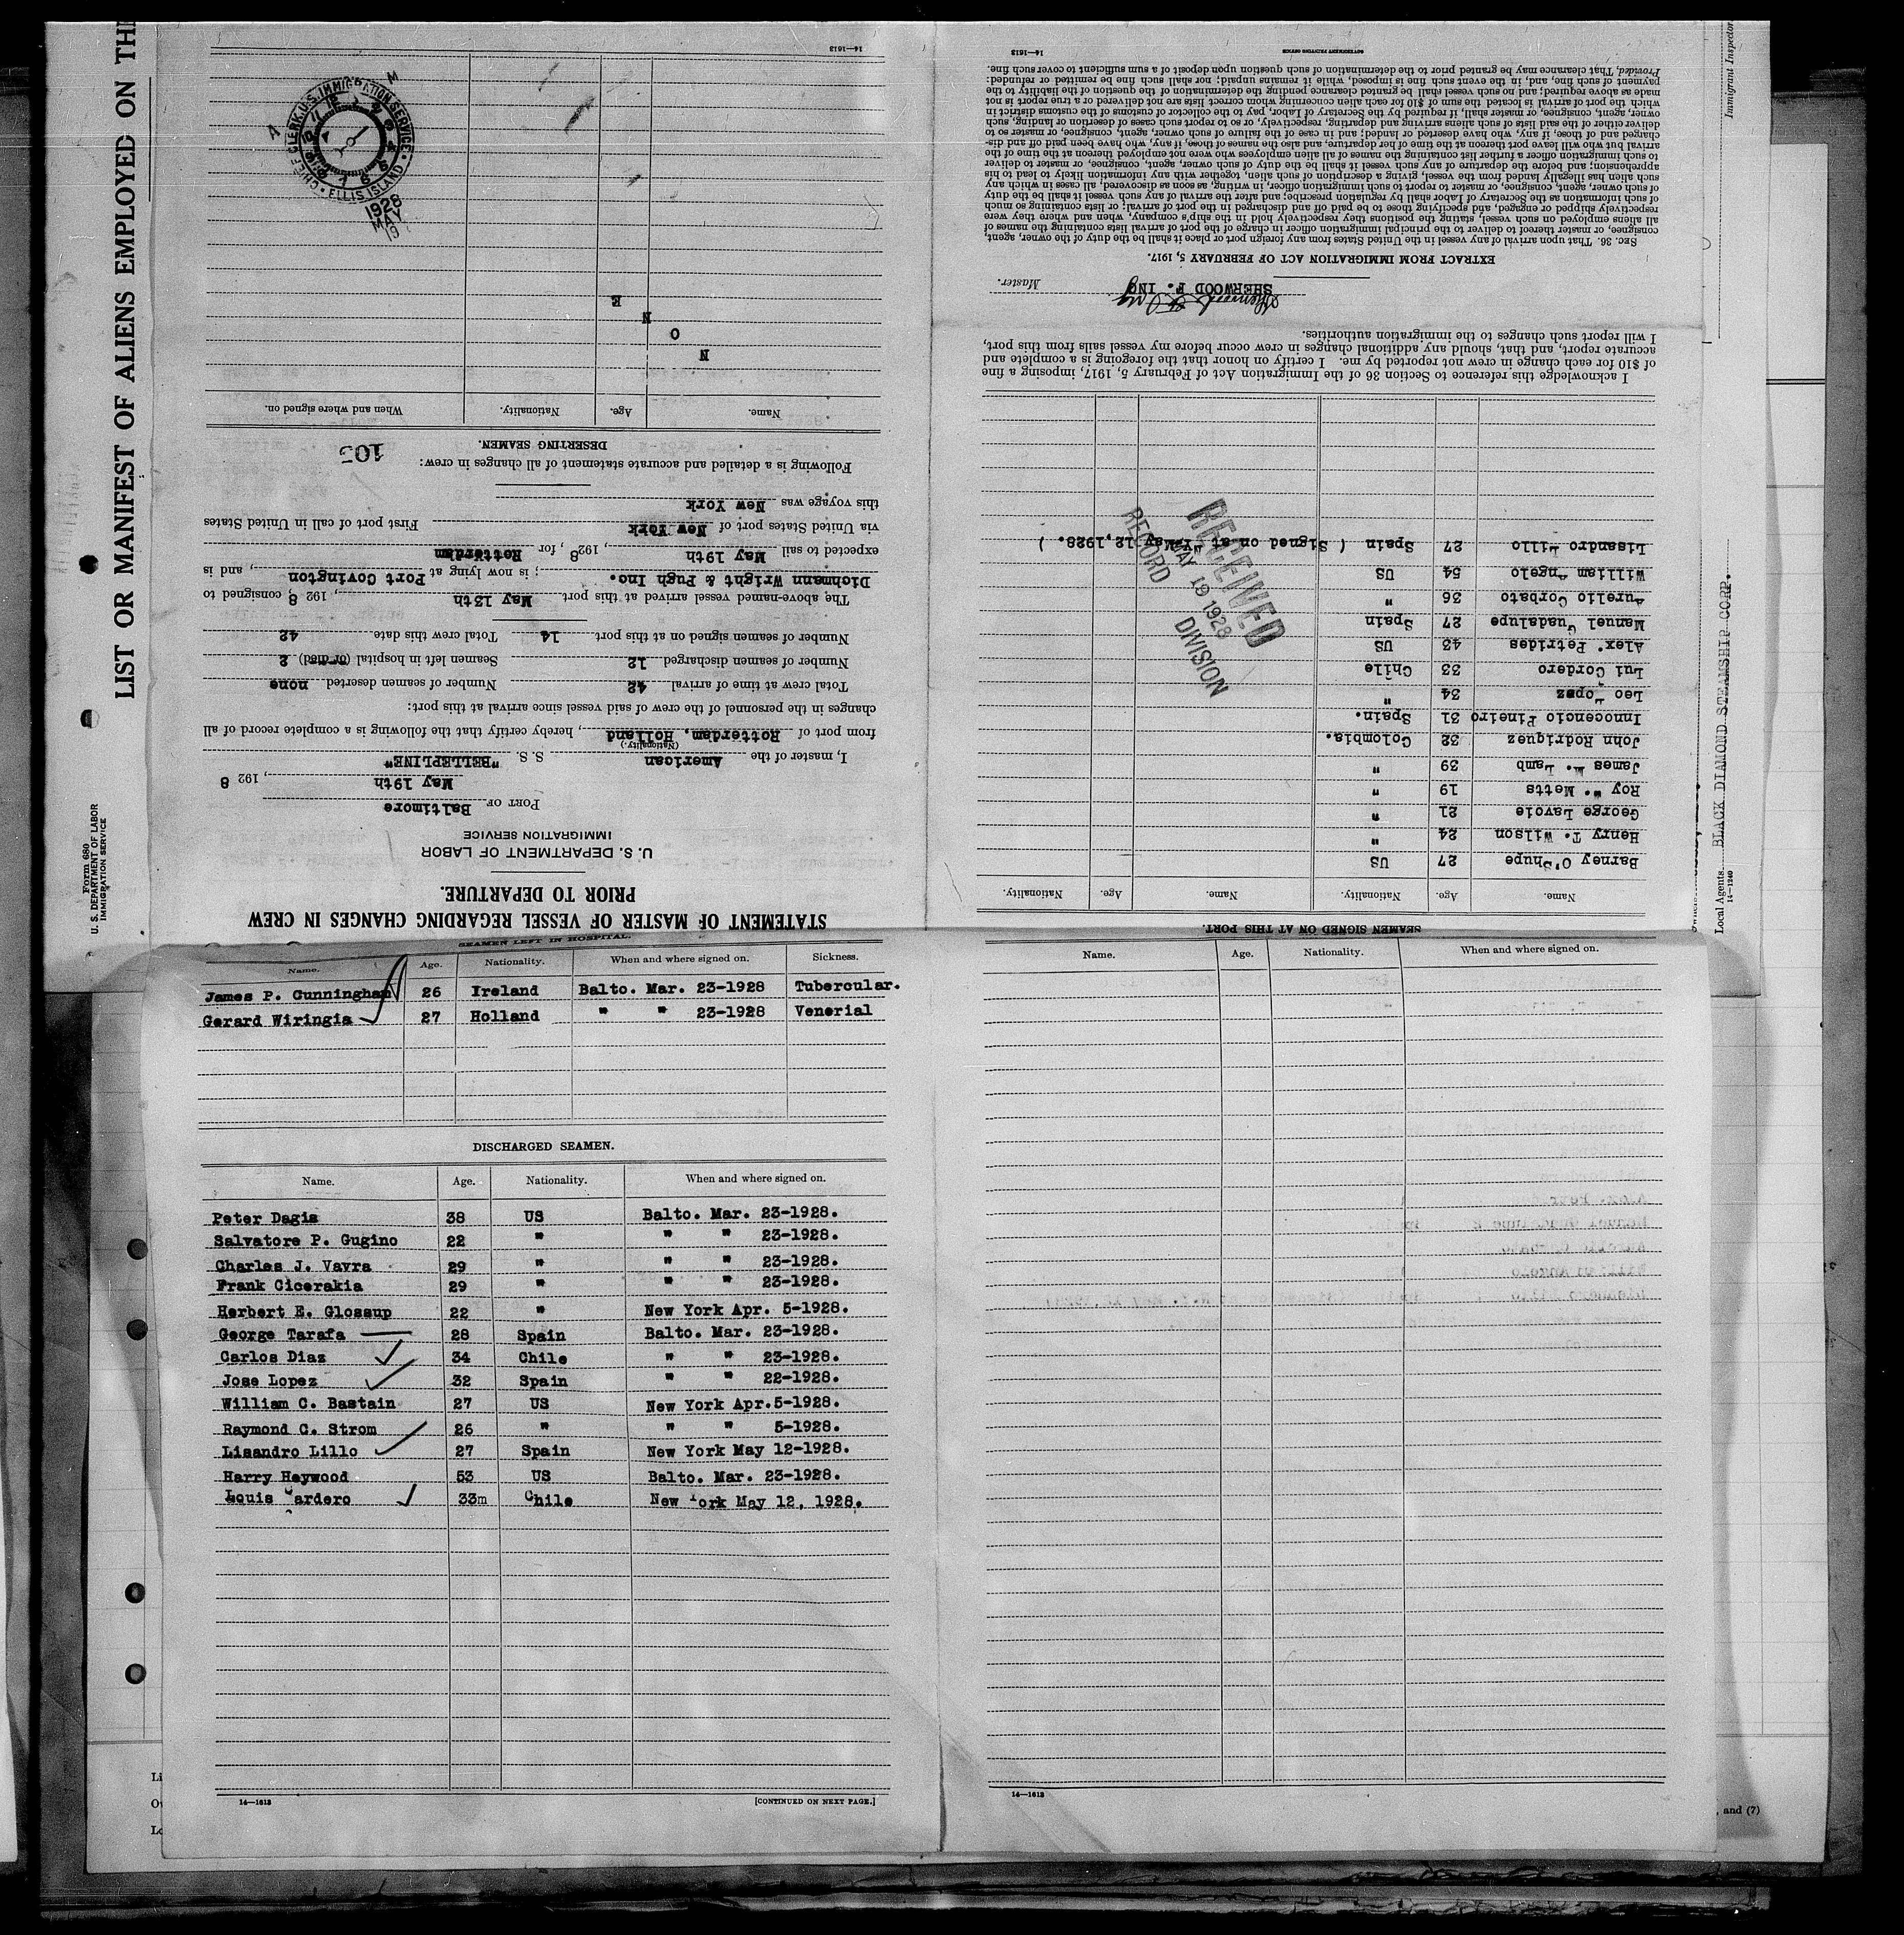 LIST OR MANIFEST OF ALIENS EMPLOYED ON TH
Form 680
U. S. DEPARTMENT OF LABOR
IMMIGRATION SERVICE
STATEMENT OF MASTER OF VESSEL REGARDING CHANGES IN CREW
PRIOR TO DEPARTURE.
U. S. DEPARTMENT OF LABOR
IMMIGRATION SERVICE
PORT OF Baltimore
May 19th, 192 8
I, master of the American S. S. "BELLEPLINE"
(Nationality.)
from port of Rotterdam, Holland, hereby certify that the following is a complete record of all
changes in the personnel of the crew of said vessel since arrival at this port:
Total crew at time of arrival 42 Number of seamen deserted none
Number of seamen discharged 12 Seamen left in hospital (or died) 2
Number of seamen signed on at this port 14 Total crew this date 42
The above-named vessel arrived at this port May 13th, 192 8, consigned to
Dichmann Wright & Pugh Inc.; is now lying at Port Covington, and is
expected to sail May 19th, 192 8, for Rotterdam
via United States port of New York First port of call in United States
this voyage was New York
Following is a detailed and accurate statement of all changes in crew:
105
DESERTING SEAMEN.
Name. Age. Nationality. When and where signed on.
N
O
N
E
CHIEF CLERK, U.S. IMMIGRATION SERVICE
ELLIS ISLAND
1928
MAY
19
A M
14—1613
SEAMEN LEFT IN HOSPITAL.
Name. Age. Nationality. When and where signed on. Sickness.
James P. Cunningham 26 Ireland Balto. Mar. 23-1928 Tubercular.
Gerard Wiringia 27 Holland " " 23-1928 Venerial
DISCHARGED SEAMEN.
Name. Age. Nationality. When and where signed on.
Peter Dagis 38 US Balto. Mar. 23-1928.
Salvatore P. Gugino 22 " " " 23-1928.
Charles J. Vavra 29 " " " 23-1928.
Frank Cicerakia 29 " " " 23-1928.
Herbert E. Glossup 22 " New York Apr. 5-1928.
George Tarafa 28 Spain Balto. Mar. 23-1928.
Carlos Diaz 34 Chile " " 23-1928.
Jose Lopez 32 Spain " " 22-1928.
William C. Bastain 27 US New York Apr.5-1928.
Raymond C. Strom 26 " " " 5-1928.
Lisandro Lillo 27 Spain New York May 12-1928.
Harry Heywood 53 US Balto. Mar. 23-1928.
Louis Cardero 33m Chile New York May 12, 1928.
14—1613
[CONTINUED ON NEXT PAGE.]
Name. Age. Nationality. When and where signed on.
14—1613
SEAMEN SIGNED ON AT THIS PORT.
Name. Age. Nationality. Name. Age. Nationality.
Barney O'Shupe 27 US
Henry T. Wilson 24 "
George Lavoie 21 "
Roy W. Metts 19 "
James M. Lamb 39 "
John Rodriquez 32 Colombia.
Innocencio Pineiro 31 Spain.
Leo Lopez 34 "
Lui Cordero 33 Chile
Alex. Petrides 43 US
Manuel Guadalupe 27 Spain
Aurelio Corbato 36 "
William Angelo 54 US
Lisandro Lillo 27 Spain ( Signed on at N.Y. May 12,1928. )
RECEIVED
MAY 19 1928
RECORD DIVISION
I acknowledge this reference to Section 36 of the Immigration Act of February 5, 1917, imposing a fine
of $10 for each change in crew not reported by me. I certify on honor that the foregoing is a complete and
accurate report, and that, should any additional changes in crew occur before my vessel sails from this port,
I will report such changes to the immigration authorities.
Sherwood F. Ing
SHERWOOD F. ING
Master.
EXTRACT FROM IMMIGRATION ACT OF FEBRUARY 5, 1917.
SEC. 36. That upon arrival of any vessel in the United States from any foreign port or place it shall be the duty of the owner, agent,
consignee, or master thereof to deliver to the principal immigration officer in charge of the port of arrival lists containing the names of
all aliens employed on such vessel, stating the positions they respectively hold in the ship's company, when and where they were
respectively shipped or engaged, and specifying those to be paid off and discharged in the port of arrival; or lists containing so much
of such information as the Secretary of Labor shall by regulation prescribe; and after the arrival of any such vessel it shall be the duty
of such owner, agent, consignee, or master to report to such immigration officer, in writing, as soon as discovered, all cases in which any
such alien has illegally landed from the vessel, giving a description of such alien, together with any information likely to lead to his
apprehension; and before the departure of any such vessel it shall be the duty of such owner, agent, consignee, or master to deliver
to such immigration officer a further list containing the names of all alien employees who were not employed thereon at the time of the
arrival but who will leave port thereon at the time of her departure, and also the names of those, if any, who have been paid off and dis-
charged and of those, if any, who have deserted or landed; and in case of the failure of such owner, agent, consignee, or master so to
deliver either of the said lists of such aliens arriving and departing, respectively, or so to report such cases of desertion or landing, such
owner, agent, consignee, or master shall, if required by the Secretary of Labor, pay to the collector of customs of the customs district in
which the port of arrival is located the sum of $10 for each alien concerning whom correct lists are not delivered or a true report is not
made as above required; and no such vessel shall be granted clearance pending the determination of the question of the liability to the
payment of such fine, and, in the event such fine is imposed, while it remains unpaid; nor shall such fine be remitted or refunded:
Provided, That clearance may be granted prior to the determination of such question upon deposit of a sum sufficient to cover such fine.
GOVERNMENT PRINTING OFFICE
14—1613
Immigrant Inspector
Local Agents. BLACK DIAMOND STEAMSHIP CORP.
14—1240
, and (7)